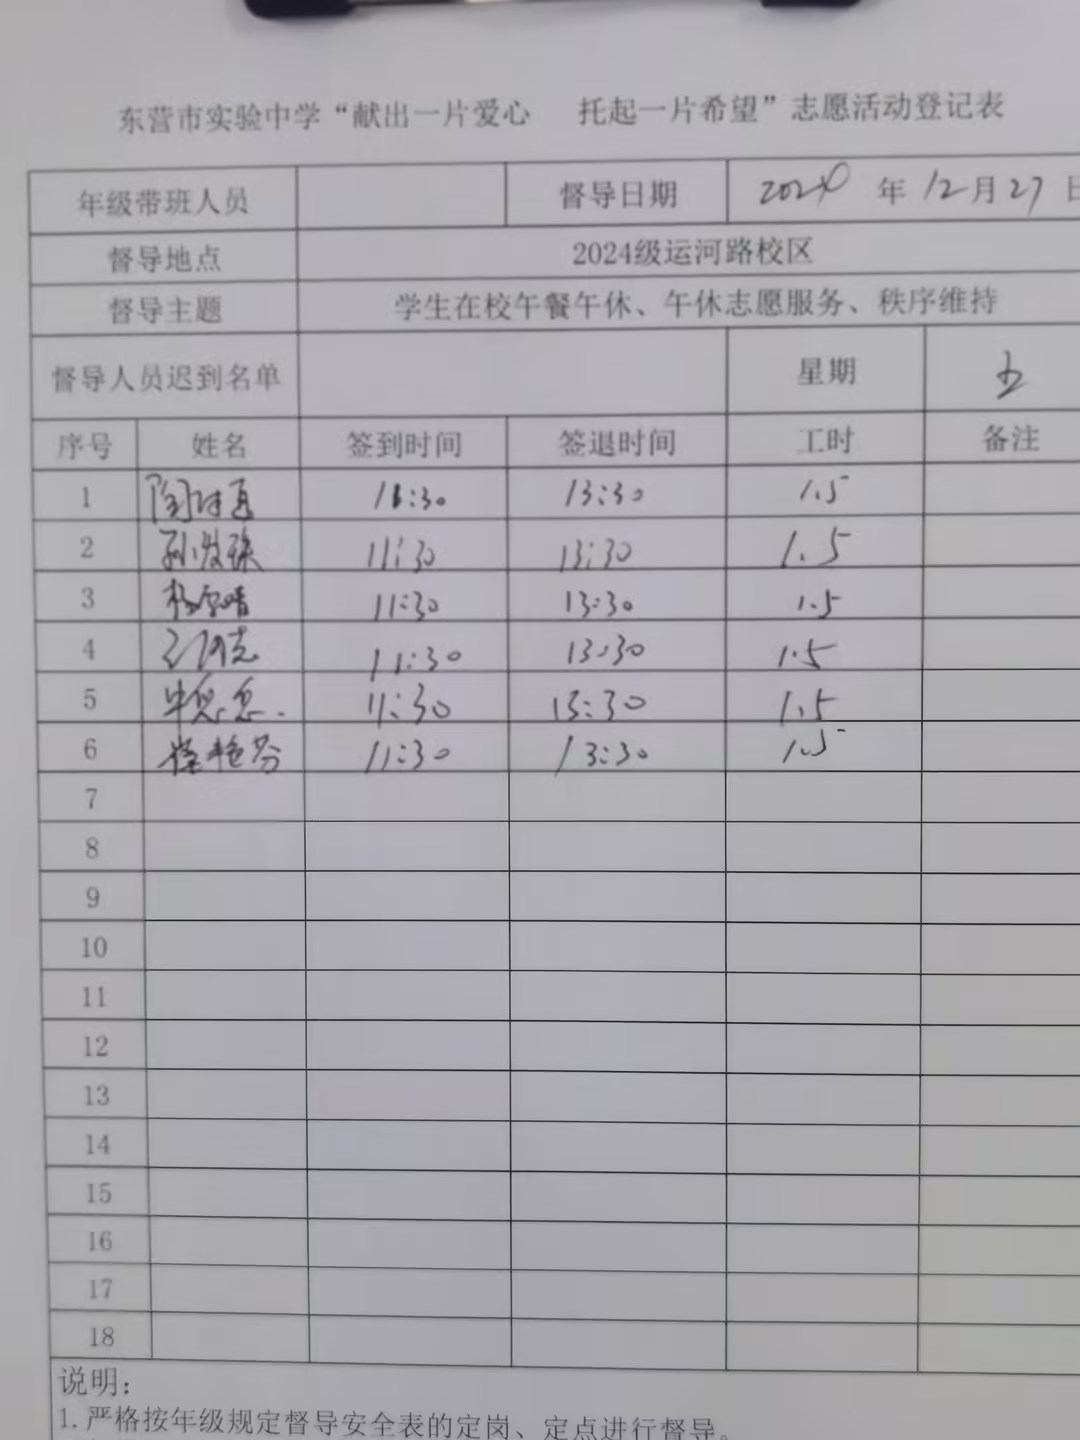 东营市实验中学“献出一片爱心 托起一片希望”志愿活动登记表
年级带班人员 督导日期 2024 年 12月27日
督导地点 2024级运河路校区
督导主题 学生在校午餐午休、午休志愿服务、秩序维持
督导人员迟到名单 星期 五
序号 姓名 签到时间 签退时间 工时 备注
1 11:30 13:30 1.5
2 11:30 13:30 1.5
3 11:30 13:30 1.5
4 11:30 13:30 1.5
5 牛忽忽 11:30 13:30 1.5
6 11:30 13:30 1.5
7
8
9
10
11
12
13
14
15
16
17
18
说明：
1.严格按年级规定督导安全表的定岗、定点进行督导。